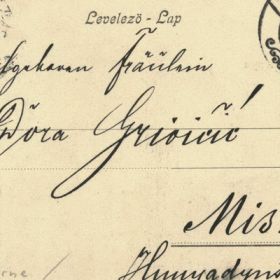 Levelező - Lap
lgeboren Fräulein
Dóra Grivičić
Mis
Hunyadyn